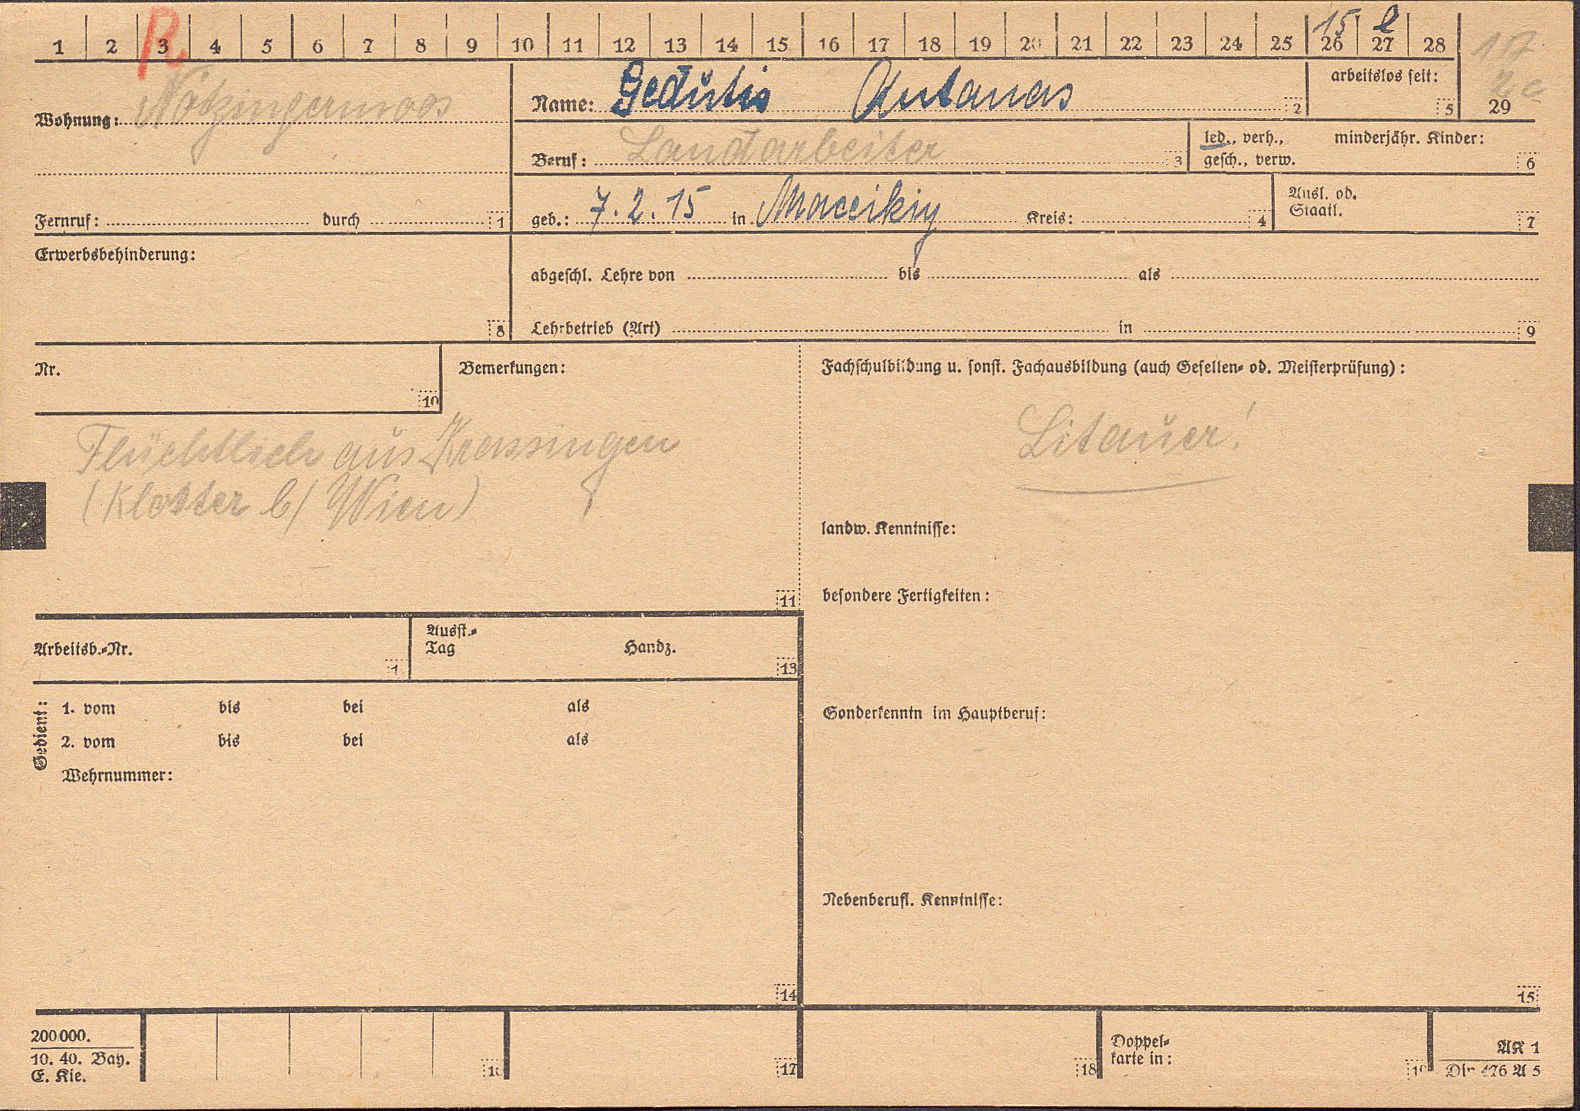 1 2 3 4 5 6 7 8 9 10 11 12 13 14 15 16 17 18 19 20 21 22 23 24 25 26 27 28
R
15 l
17
29
Wohnung: Notzingermoos
Name: Gedutis Antanas 2
arbeitslos seit: 5
Beruf: Landarbeiter 3
led., verh., gesch., verw.
minderjähr. Kinder: 6
Fernruf: durch 1
geb.: 7.2.15 in Maceikiy Kreis: 4
Ausl. od.
Staatl. 7
Erwerbsbehinderung:
8
abgeschl. Lehre von bis als
Lehrbetrieb (Art) in 9
Nr.
10
Bemerkungen:
Flüchtlich aus
(Kloster b/ Wien)
11
Fachschulbildung u. sonst. Fachausbildung (auch Gesellen- od. Meisterprüfung):
Litauer!
landw. Kenntnisse:
besondere Fertigkeiten:
Arbeitsb.-Nr.
Ausst.-
Tag Handz. 13
Gedient:
1. vom bis bei als
2. vom bis bei als
Wehrnummer:
Sonderkenntn im Hauptberuf:
Nebenberufl. Kenntnisse:
14
15
200000.
10. 40. Bay.
E. Kle.
17
18
Doppel-
karte in:
AK 1
Din 476 A 5